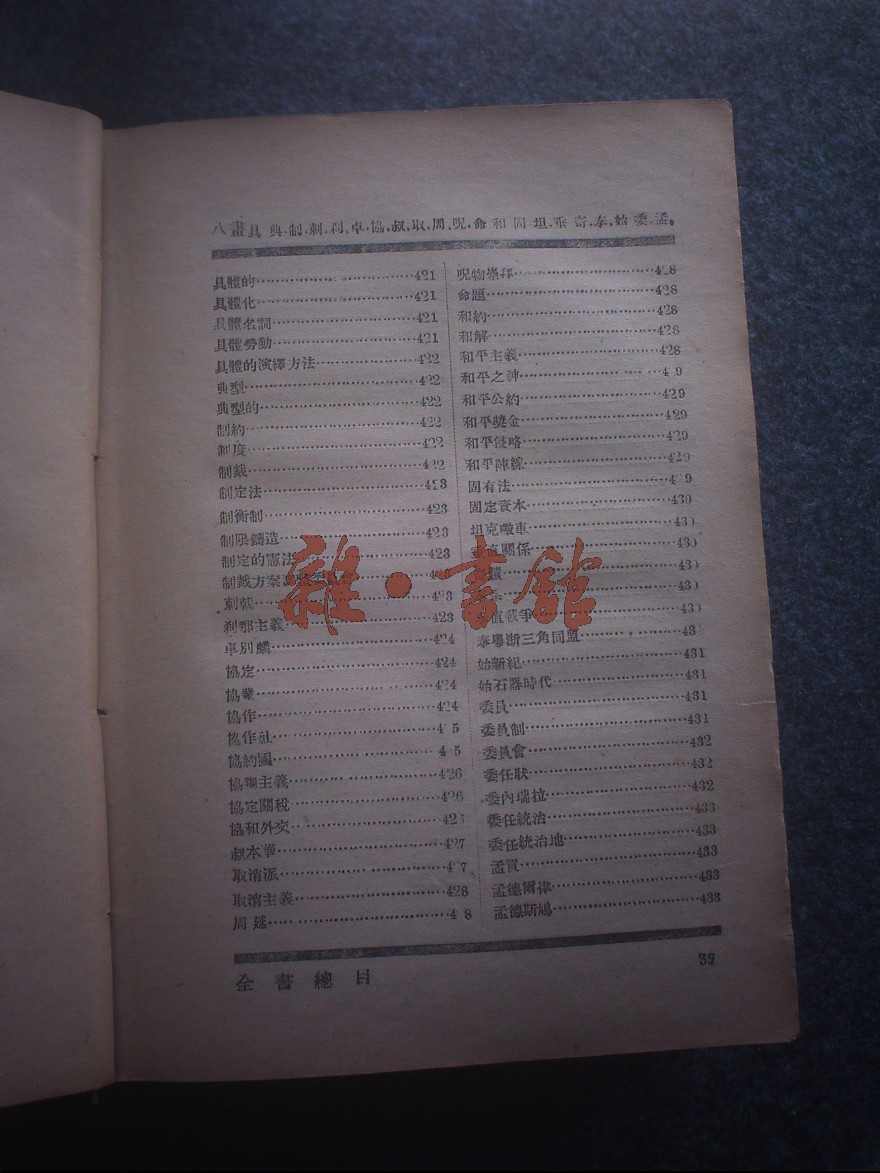 八畫 具.典.制.刺.刹.卓.協.叔.取.周.呪.命.和.固.坦.垂.奇.泰.始.委.孟.
具體的……421
具體化……421
具體名詞……421
具體勞動……421
具體的演繹方法……422
典型……422
典型的……422
制約……422
制度……422
制裁……422
制定法……423
制衡制……423
制限鑄造……423
制定的憲法……423
制裁方案
刺戟……423
刹那主義……423
卓別麟……424
協定……424
協業……424
協作……424
協作社……4 5
協約國……4 5
協調主義……426
協定關稅……426
協和外交……42
叔本華……427
取消派……4 7
取消主義……428
周延……4 8
呪物崇拜……428
命題……428
和約……428
和解……428
和平主義……428
和平之神……4 9
和平公約……429
和平獎金……429
和平侵略……429
和平陣線……429
固有法……4 9
固定資本……430
坦克戰車……430
垂直關係……430
43
43
值戰爭……43
泰粵浙三角同盟……43
始新紀……431
始石器時代……431
委員……431
委員制……431
委員會……432
委任狀……432
委內瑞拉……432
委任統治……433
委任統治地……433
孟買……433
孟德爾律……433
孟德斯鳩……433
全書總目
35
雜·書館